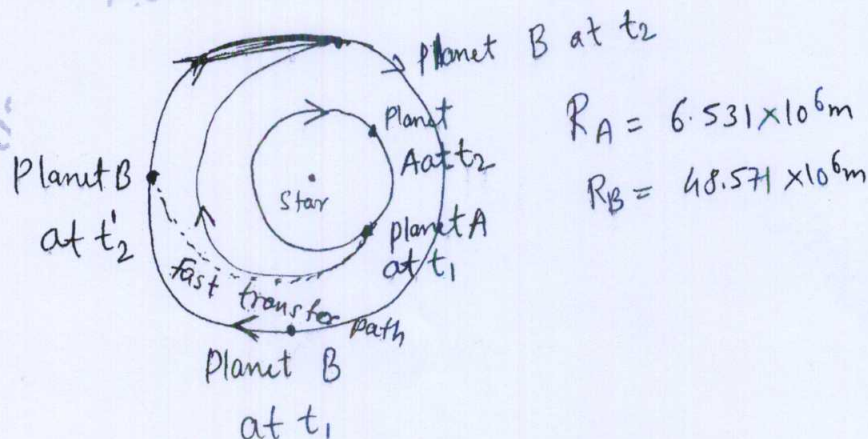 Planet B at t2
Planet
A at t2
RA = 6.531 × 10^6 m
RB = 48.571 × 10^6 m
Planet B
at t2'
Star
Planet A
at t1
fast transfer path
Planet B
at t1